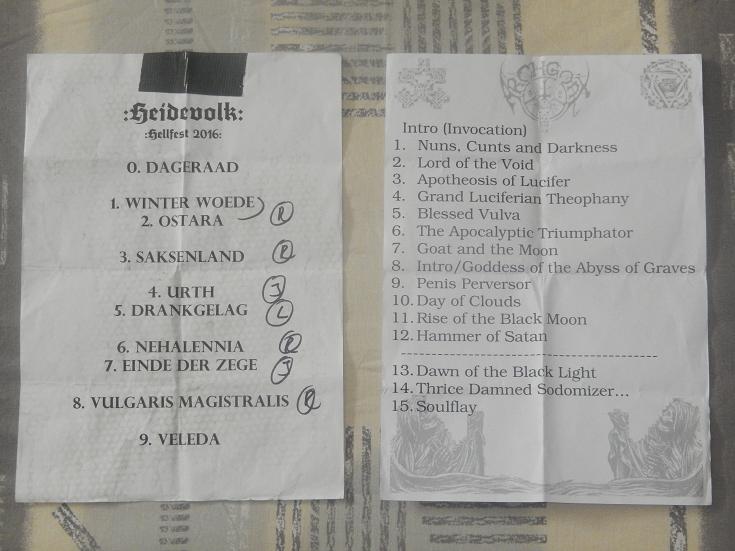 :Heidevolk:
:Hellfest 2016:
0. DAGERAAD
1. WINTER WOEDE
2. OSTARA
R
3. SAKSENLAND
R
4. URTH
J
5. DRANKGELAG
L
6. NEHALENNIA
R
7. EINDE DER ZEGE
J
8. VULGARIS MAGISTRALIS
R
9. VELEDA
ARCHGOAT
Intro (Invocation)
1. Nuns, Cunts and Darkness
2. Lord of the Void
3. Apotheosis of Lucifer
4. Grand Luciferian Theophany
5. Blessed Vulva
6. The Apocalyptic Triumphator
7. Goat and the Moon
8. Intro/Goddess of the Abyss of Graves
9. Penis Perversor
10. Day of Clouds
11. Rise of the Black Moon
12. Hammer of Satan
13. Dawn of the Black Light
14. Thrice Damned Sodomizer...
15. Soulflay